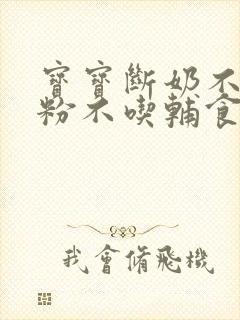 寶寶斷奶不
粉不喫輔食
我會脩飛機